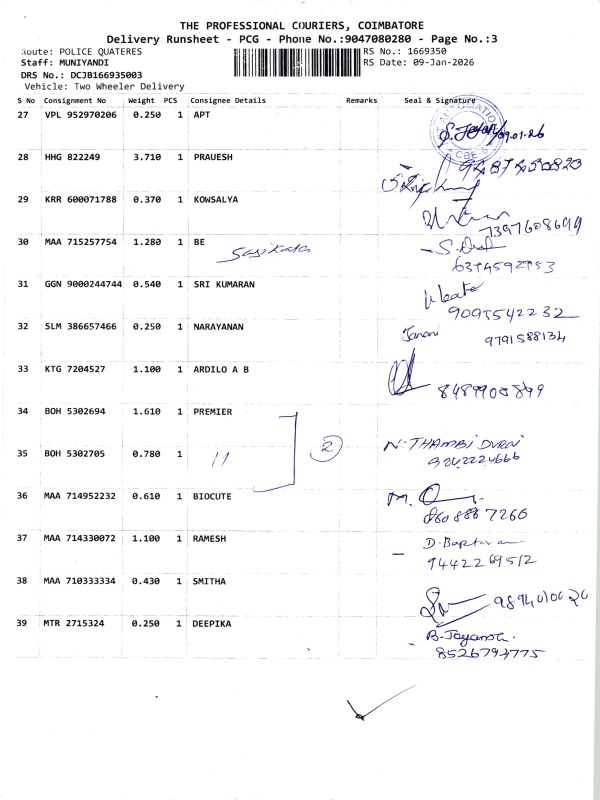 THE PROFESSIONAL COURIERS, COIMBATORE
Delivery Runsheet - PCG - Phone No.:9047080280 - Page No.:3
Route: POLICE QUATERES
RS No.: 1669350
Staff: MUNIYANDI
RS Date: 09-Jan-2026
DRS No.: DCJB166935003
Vehicle: Two Wheeler Delivery
S No Consignment No Weight PCS Consignee Details Remarks Seal & Signature
27 VPL 952970206 0.250 1 APT
09.01.26
28 HHG 822249 3.710 1 PRAUESH
29 KRR 600071788 0.370 1 KOWSALYA
7397608699
30 MAA 715257754 1.280 1 BE
31 GGN 9000244744 0.540 1 SRI KUMARAN
9095542232
32 SLM 386657466 0.250 1 NARAYANAN
Janani 9791588134
33 KTG 7204527 1.100 1 ARDILO A B
8489900899
34 BOH 5302694 1.610 1 PREMIER
2
35 BOH 5302705 0.780 1 11
N. THAMBI DURAI
9842224666
36 MAA 714952232 0.610 1 BIOCUTE
8608867266
37 MAA 714330072 1.100 1 RAMESH
94442269512
38 MAA 710333334 0.430 1 SMITHA
39 MTR 2715324 0.250 1 DEEPIKA
8526794775